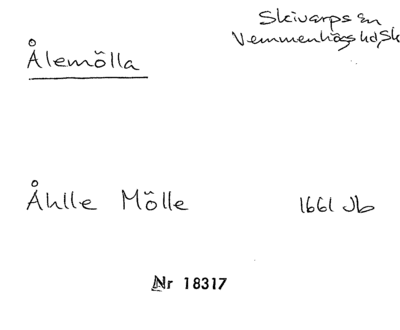 Skivarps sn
Vemmenhögs hd, Sk
Ålemölla
Åhlle Mölle 1661 Jb
Nr 18317